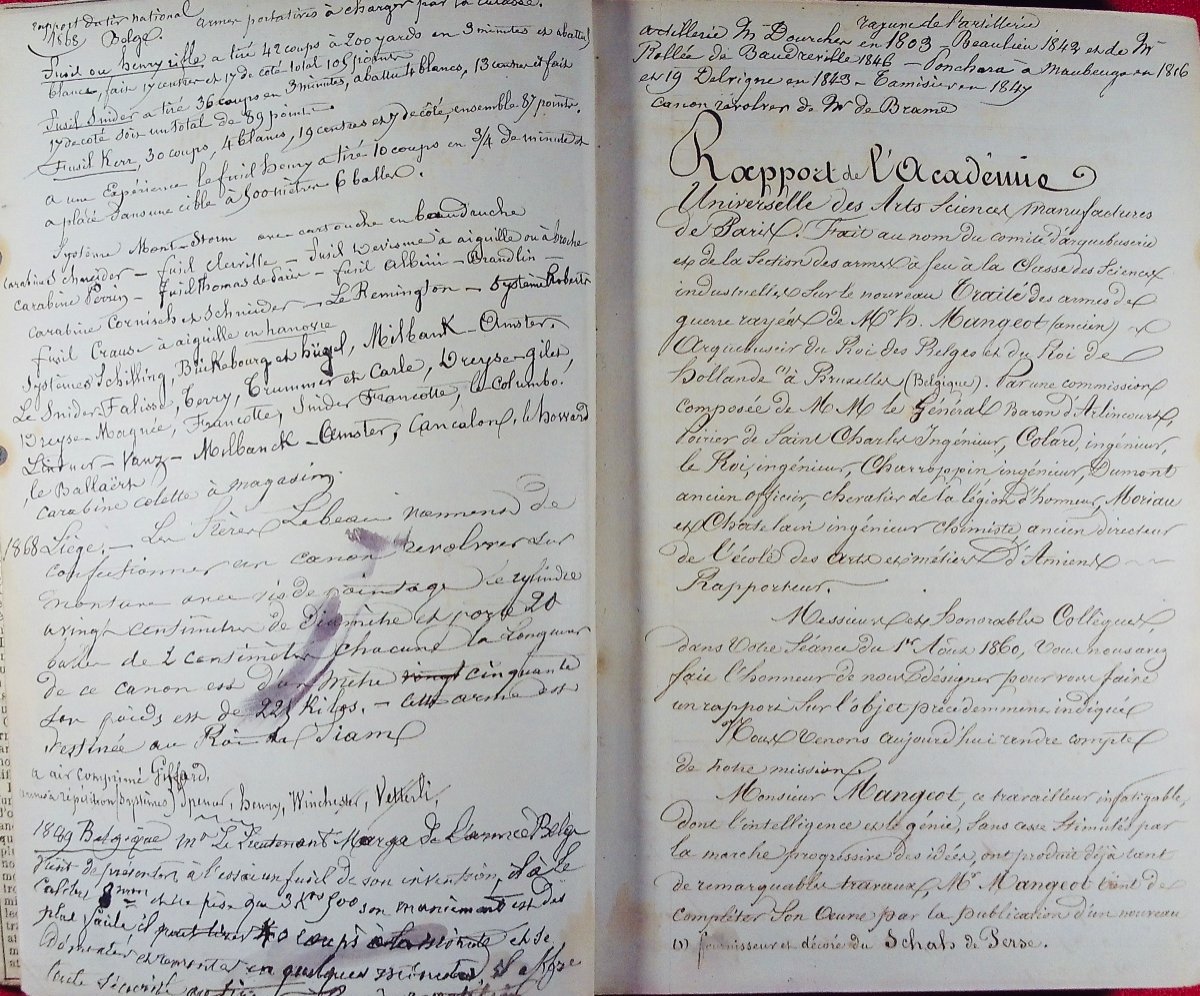 rapport du tir national armes portatives à charger par la culasse.
1868 Belge.
Fusil ou henry rifle a tiré 42 coups à 200 yards en 3 minutes et abattu
blancs, fait 17 centres et 17 de coté total 105 points
Fusil Snider a tiré 36 coups en 3 minutes, abattu 4 blancs, 13 centres et fait
17 de coté sois un total de 89 points.
Fusil Kerr, 30 coups, 4 blancs, 19 centres et 7 de côté, ensemble 87 points.
a une Expérience le fusil henry a tiré 10 coups en 3/4 de minute et
a placé dans une cible à 500 mètres 6 balles.
Système Mont-Storm avec cartouche en baudruche
carabine Schneider – fusil Cleuville – fusil Devisme à aiguille ou à broche
carabine Perrin – fusil Thomas de Paris – fusil Albini – Brandlin –
carabine Cornisch et Schneider – Le Remington – Système Roberts
fusil Crause à aiguille en hanovre
Systèmes Schilling, Bückebourg et hügel, Milbank – Amster.
Le Snider Falisse, Terry, Trummer et Carle, Dreyse – Gilet,
Dreyse – Maquée, Francotte, Snider Francotte, le Columbo.
Lindner – Vanz – Milbanck – Amster, Cancalon, le howard
, le Ballaërt
carabine colette à magasin.
1868 Liège. – Les Frères Lebeau viennent de
confectionner un canon revolver sur
monture avec vis de pointage le cylindre
a vingt centimètres de diamètre et porte 20
balles de 2 centimètres chacune la longueur
de ce canon est d'un mètre vingt cinquante
son poids est de 225 kilos. – cette arme est
destinée au Roi de Siam
a air comprimé Giffard.
armes à répétition (systèmes) Spencer, henry, Winchester, Vetterli,
1869 Belgique Mr Le Lieutenant Marga de L'armée Belge
vient de présenter à l'essai un fusil de son invention, il a le
calibre 8 mm et ne pèse que 3 Kos 500 son maniement est des
plus facile il peut tirer 40 coups à la minute et se
démonter et remonter en quelques minutes, il offre
toute sécurité
rayure de l'artillerie
artillerie Mr Dourcher en 1803 Beaulieu 1843 et de Mr
Rollée de Baudreville 1846 – Ponchara à Maubeuge en 1816
et 19 Delvigne en 1843 – Tamisier en 1847
canon revolver de Mr de Brame
Rapport de l'Académie
Universelle des Arts Sciences Manufactures
de Paris. Fait au nom du comité d'arquebuserie
et de la Section des armes à feu à la Classe des Sciences
industrielles Sur le nouveau Traité des armes de
guerre rayées de Mr h. Mangeot (ancien)
Arquebusier du Roi des Belges et du Roi de
hollande (1) à Bruxelles (Belgique). Par une commission
composée de M M le Général Baron d'Arlincourt,
Poirier de Saint Charles Ingénieur, Colard, ingénieur,
le Roi, ingénieur, Charroppin ingénieur, Dumont
ancien officier, chevalier de la légion d'honneur, Moriau
et Chatelain ingénieur chimiste, ancien directeur
de l'école des arts et métiers d'Amiens
Rapporteur.
Messieurs et honorables Collègues,
dans Votre Séance du 1er Aout 1860, Vous nous avez
fait l'honneur de nous désigner pour vous faire
un rapport Sur l'objet précédemment indiqué
Nous Venons aujourd'hui rendre compte
de notre mission
Monsieur Mangeot, ce travailleur infatigable,
dont l'intelligence et le génie, Sans cesse Stimulés par
la marche progressive des idées, ont produit déjà tant
de remarquables travaux Mr Mangeot vient de
complèter Son Œuvre par la publication d'un nouveau
(1) fournisseur et décoré du Schah de Perse.